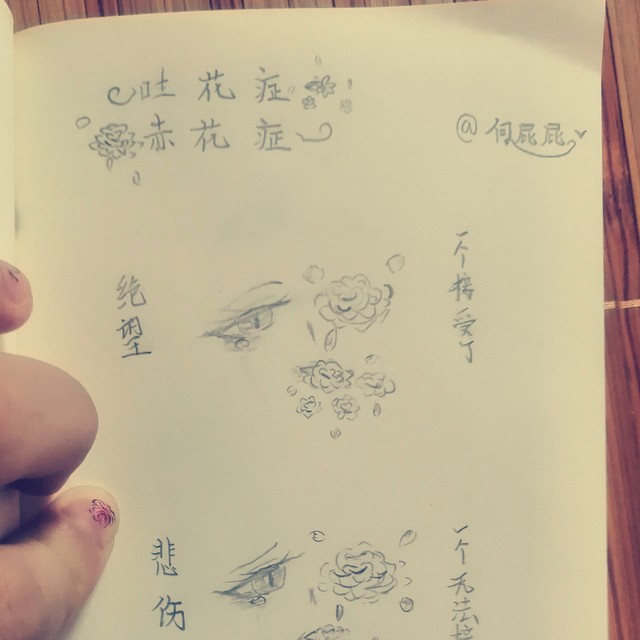 吐花症
赤花症
@何屁屁
绝望
一个接受了
悲伤
一个无法接